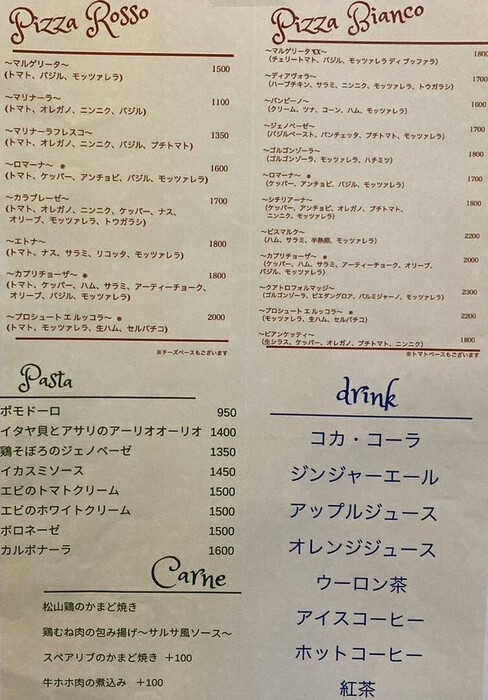 Pizza Rosso
～マルゲリータ～ 1500
(トマト、バジル、モッツァレラ)
～マリナーラ～ 1100
(トマト、オレガノ、ニンニク、バジル)
～マリナーラフレスコ～ 1350
(トマト、オレガノ、ニンニク、バジル、プチトマト)
～ロマーナ～ ● 1600
(トマト、ケッパー、アンチョビ、バジル、モッツァレラ)
～カラブレーゼ～ 1700
(トマト、オレガノ、ニンニク、ケッパー、ナス、
オリーブ、モッツァレラ、トウガラシ)
～エトナ～ 1800
(トマト、ナス、サラミ、リコッタ、モッツァレラ)
～カプリチョーザ～ ● 1800
(トマト、ケッパー、ハム、サラミ、アーティーチョーク、
オリーブ、バジル、モッツァレラ)
～プロシュート エ ルッコラ～ ● 2000
(トマト、モッツァレラ、生ハム、セルバチコ)
※チーズベースもございます
Pizza Bianco
～マルゲリータ EX～ 1800
(チェリートマト、バジル、モッツァレラ ディ ブッファラ)
～ディアヴォラ～ 1700
(ハーブチキン、サラミ、ニンニク、モッツァレラ、トウガラシ)
～バンビーノ～ 1600
(クリーム、ツナ、コーン、ハム、モッツァレラ)
～ジェノベーゼ～ 1700
(バジルペースト、パンチェッタ、プチトマト、モッツァレラ)
～ゴルゴンゾーラ～ 1800
(ゴルゴンゾーラ、モッツァレラ、ハチミツ)
～ロマーナ～ ● 1700
(ケッパー、アンチョビ、バジル、モッツァレラ)
～シチリアーナ～ 1800
(ケッパー、アンチョビ、オレガノ、プチトマト、
ニンニク、モッツァレラ)
～ビスマルク～ 2200
(ハム、サラミ、半熟卵、モッツァレラ)
～カプリチョーザ～ ● 2000
(ケッパー、ハム、サラミ、アーティーチョーク、オリーブ、
バジル、モッツァレラ)
～クアトロフォルマッジ～ 2300
(ゴルゴンゾーラ、ピエダングロア、パルミジャーノ、モッツァレラ)
～プロシュート エ ルッコラ～ ● 2200
(モッツァレラ、生ハム、セルバチコ)
～ビアンケッティ～ 1800
(生シラス、ケッパー、オレガノ、プチトマト、ニンニク)
※トマトベースもございます
Pasta
ポモドーロ 950
イタヤ貝とアサリのアーリオオーリオ 1400
鶏そぼろのジェノベーゼ 1350
イカスミソース 1450
エビのトマトクリーム 1500
エビのホワイトクリーム 1500
ボロネーゼ 1500
カルボナーラ 1600
Carne
松山鶏のかまど焼き
鶏むね肉の包み揚げ～サルサ風ソース～
スペアリブのかまど焼き +100
牛ホホ肉の煮込み +100
drink
コカ・コーラ
ジンジャーエール
アップルジュース
オレンジジュース
ウーロン茶
アイスコーヒー
ホットコーヒー
紅茶